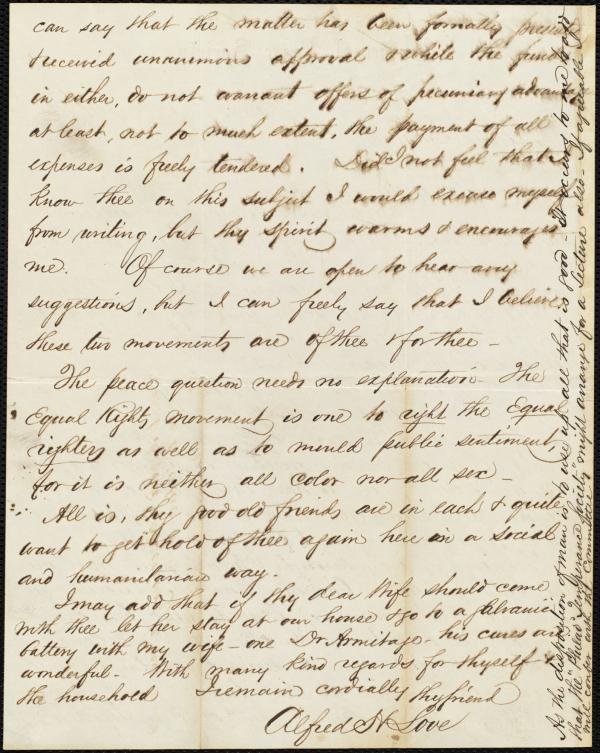 can say that the matter has been formally present
& received unanimous approval & while the funds
in either, do not warrant offers of pecuniary advan
at least, not to much extent, the payment of all
expenses is freely tendered. Did I not feel that I
know thee on this subject I would excuse myself
from writing, but thy spirit warms & encourages
me. Of course we are open to hear any
suggestions, but I can freely say that I believe
these two movements are of thee & for thee -
The peace question needs no explanation - The
Equal Rights movement is one to right the Equal
righters as well as to mould public sentiment,
for it is neither all color nor all sex -
All is, thy good old friends are in each & quite
want to get hold of thee again here in a social
and humanitarian way.
I may add that if thy dear Wife should come
with thee let her stay at our house & go to a galvanic
battery with my wife - one Dr Armitage - his cures are
wonderful - With many kind regards for thyself &
the household I remain cordially thy friend
Alfred H Love
As the disposition of man is to use up all that is good - it occurs to me to add
that the "Philada Temperance Society" might arrange for a Lecture also - If agreeable I
will confer with the Committee